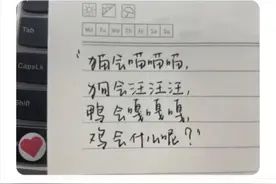 Tab
CapsLk
Shift
Mo Tu We Th Fr Sa Su
“猫会喵喵喵,
狗会汪汪汪,
鸭会嘎嘎嘎,
鸡会什么呢?”